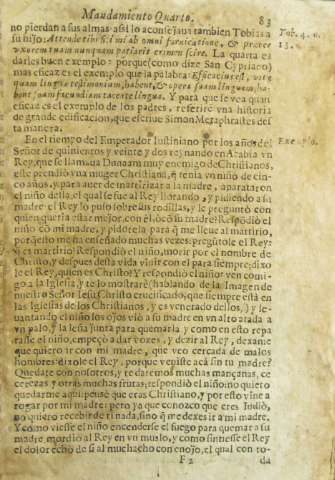 Mandamiento Quarto. 83
no pierdan sus almas: assi lo aconseja ua tambien Tobias a
su hijo: Attende tibi fili mi ab omni fornicatione, & præter
vxorem tuam nunquam patiaris crimen scire. La quarta es
darles buen exemplo: porque (como dize San Cypriano)
mas eficaz es el exemplo que la palabra:
linguæ testimonium, habent, & opera suam linguam, habent
suam facundiam tacente lingua. Y para que se vea quan
eficaz es el exemplo de los padres, referirè vna historia
de grande edificacion, que escriue Simon Metaphrastes des
ta manera.
Tob. 4. v.
13.
En el tiempo del Emperador Iustiniano por los años del
Señor de quinientos y veinte y dos reynando en Arabia vn
Rey, que se llamaua Dunaam muy enemigo de Christianos,
este prendiò vna muger Christiana, q̃ tenia vn niño de cin-
co años, y para auer de martirizar a la madre, apartaron
el niño della, el qual se fue al Rey llorando, y pidiendo a su
madre: el Rey lo puso sobre sus rodillas, y le preguntò con
quien queria estar mejor, con èl, ò cõ su madre? Respõdiò el
niño cõ mi madre, y pidotela para q̃ me lleue al martirio,
porq̃ esto me ha enseñado muchas vezes: preguntole el Rey:
q̃ es martirio? Respõdiò el niño, morir por el nombre de
Christo, y despues desta vida viuir con el para siempre: dixo
le el Rey, quien es Christo? Y respondiò el niño: ven conmi-
go a la Iglesia, y te lo mostrarè (hablando de la Imagen de
nuestro Señor Iesu Christo crucificado, que siempre està en
las Iglesias de los Christianos, y es venerado dellos,) y le-
uantando el niño los ojos viò a su madre en vn alto atada a
vn palo, y la leña junta para quemarla y como en esto repa
rasse el niño, empeçò a dar vozes, y dezir al Rey, dexame
que quiero ir con mi madre, que veo cercada de malos
hombres: dixole el Rey, porque veniste acà sin tu madre?
Quedate con nosotros, y te daremos muchas mançanas, ce
rezas y otras muchas frutas: respondiò el niño: no quiero
quedarme aqui: pensè que eras Christiano, y por esto vine a
rogar por mi madre: pero ya que conozco que eres Iudio,
no quiero recebir de ti nada, sino q̃ me dexes ir a mi madre.
Y como viesse el niño encenderse el fuego para quemar a su
madre mordiò al Rey en vn muslo, y como sintiesse el Rey
el dolor echò de si al muchacho con enojo, el qual con to-
Exemplo.
F 2 da